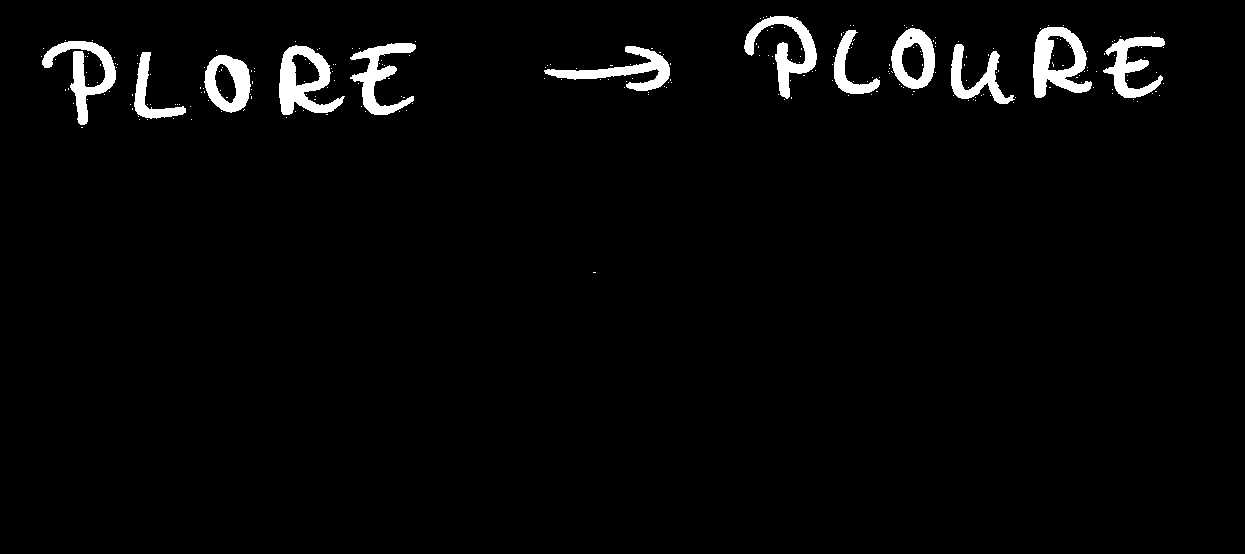 PLORE → PLOURE